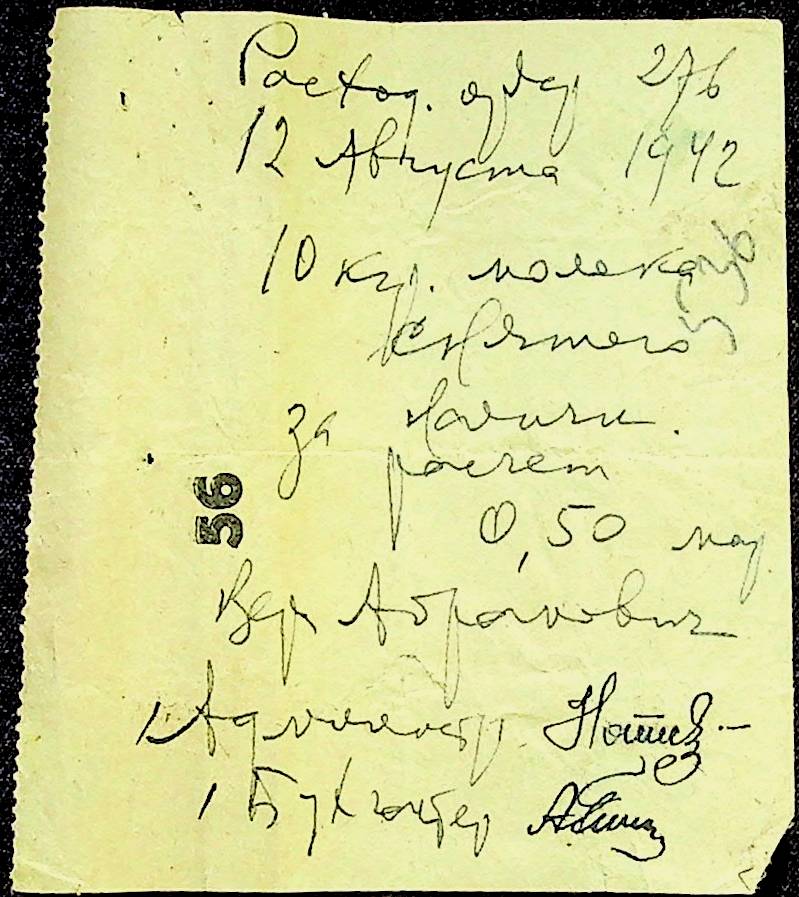 Расход. ордер 276
12 Августа 1942
10 кгр. молока
снятого
за наличн.
расчет
0,50 мар.
56
Вер Абрамович
Администр.
Бухгалтер